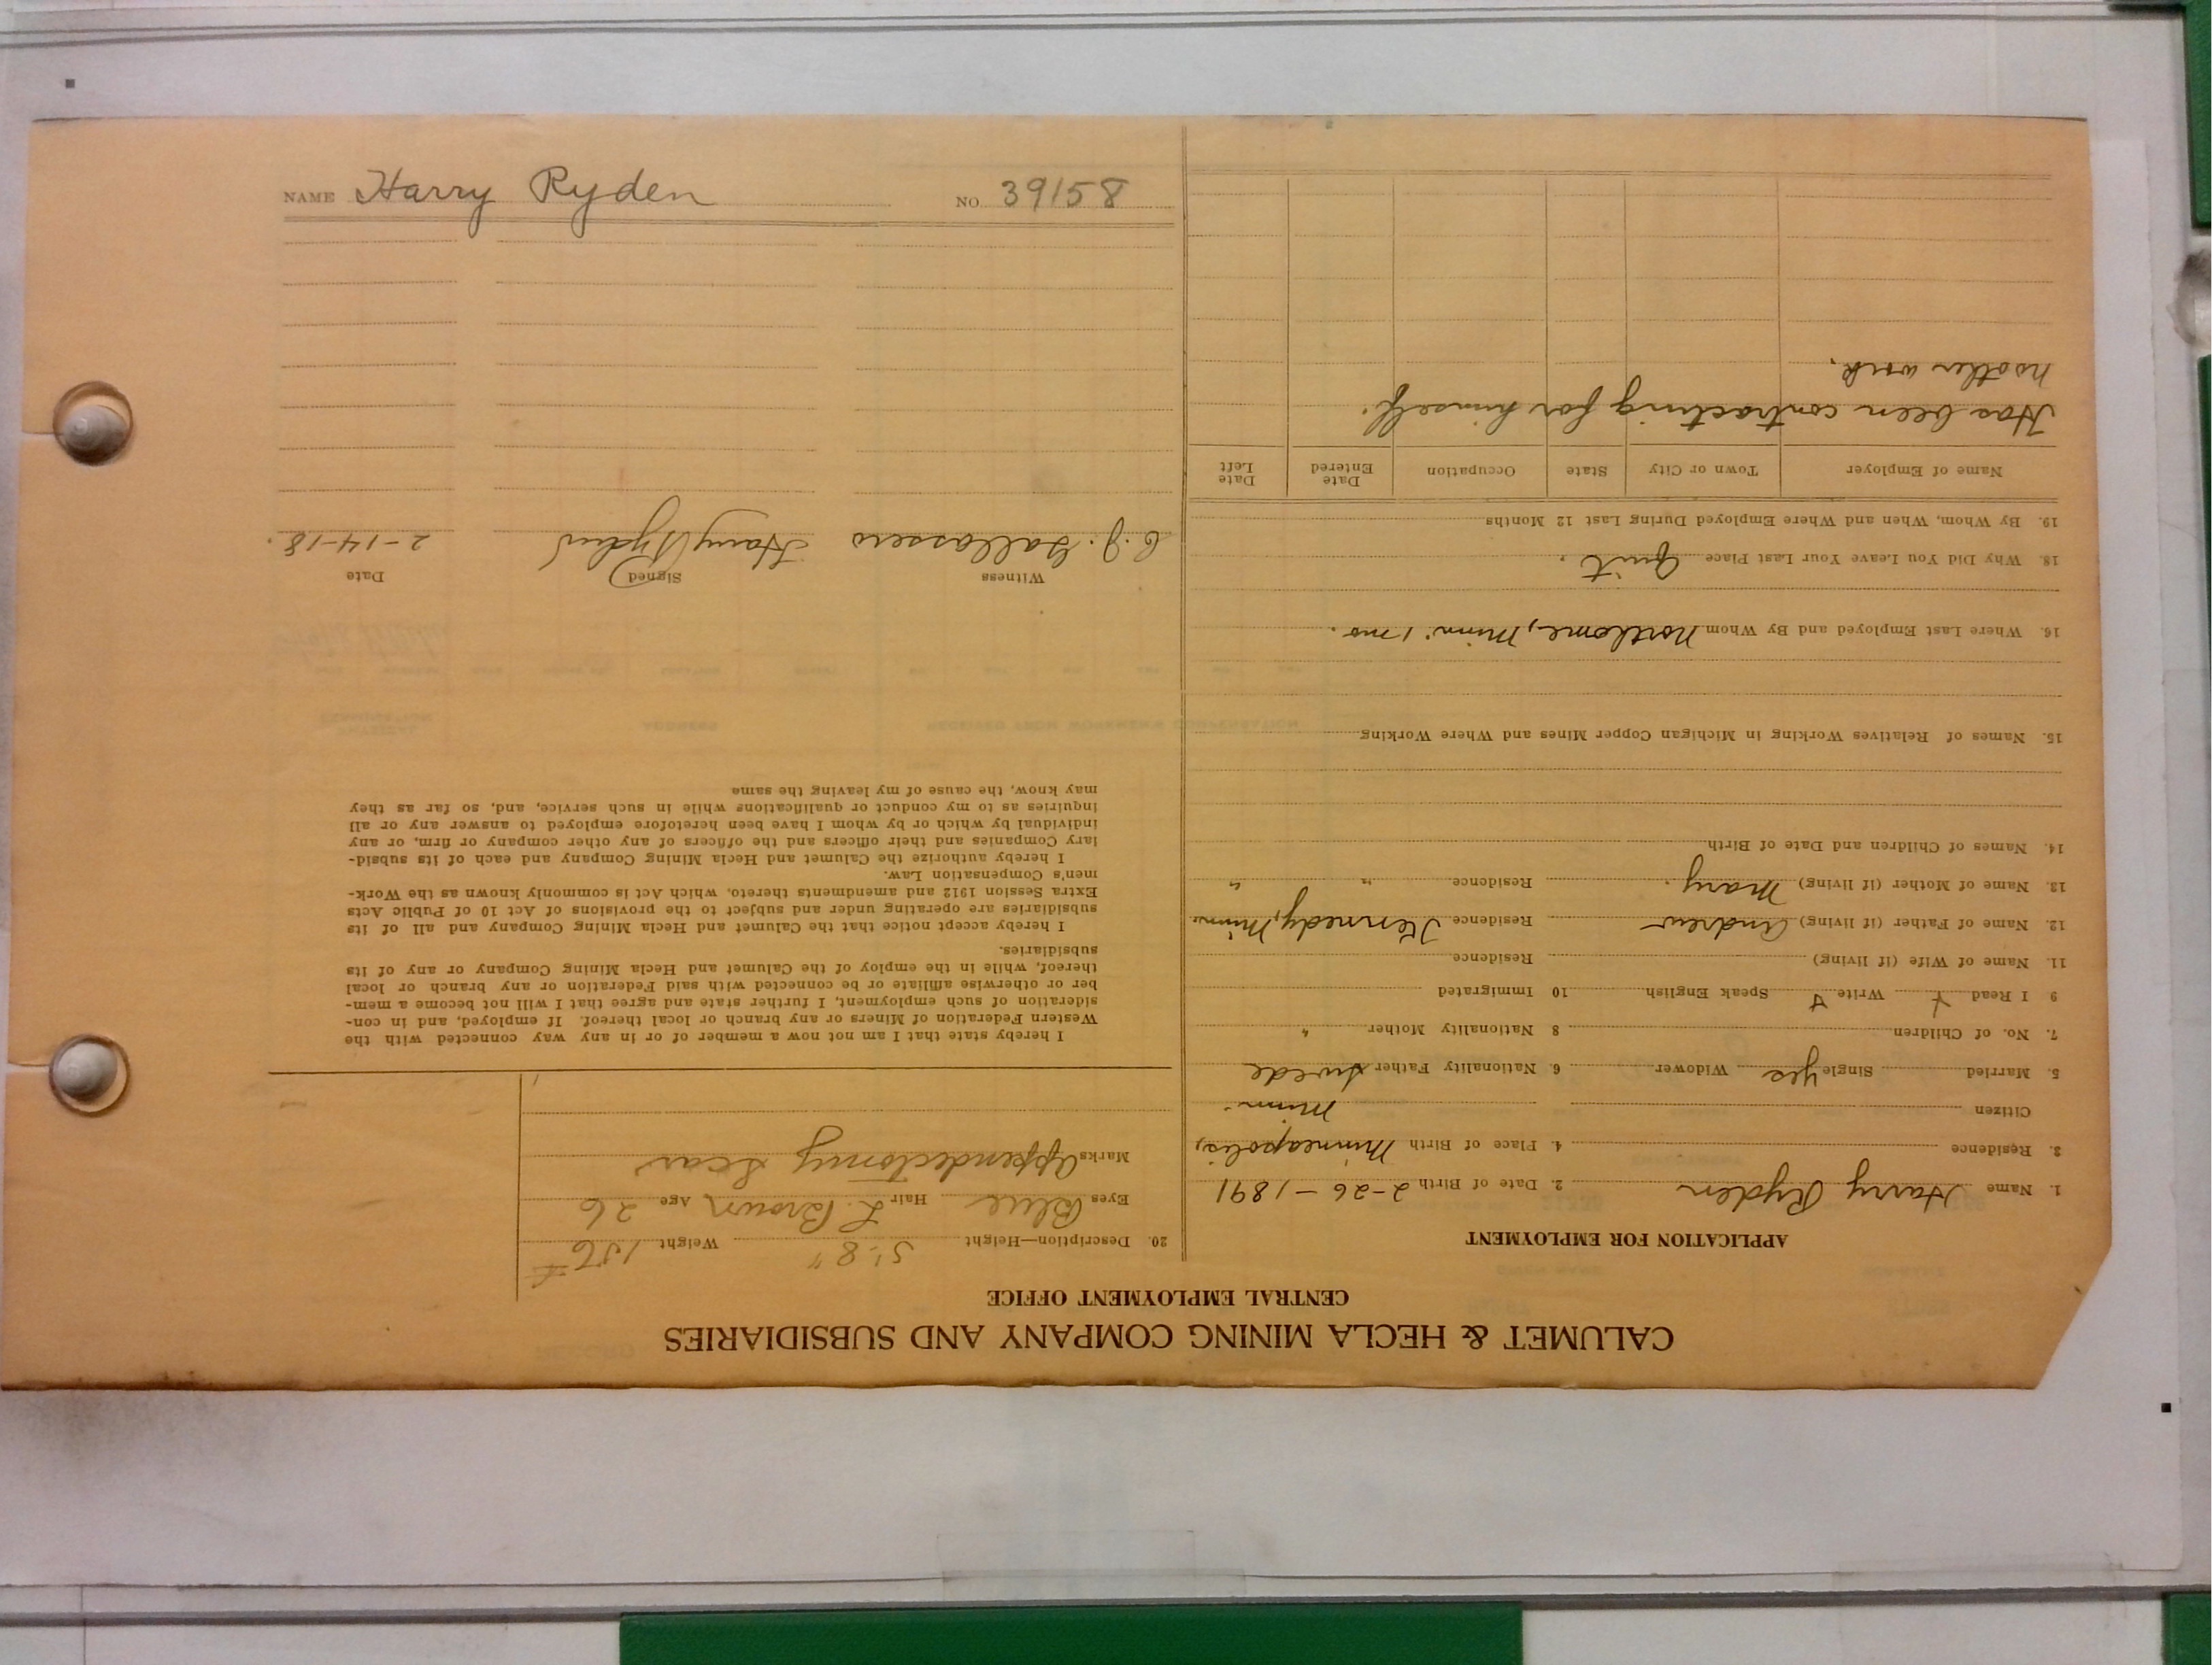 CALUMET & HECLA MINING COMPANY AND SUBSIDIARIES
CENTRAL EMPLOYMENT OFFICE
APPLICATION FOR EMPLOYMENT
1. Name Harry Ryden 2. Date of Birth 2-26-1891
3. Residence 4. Place of Birth Minneapolis,
Citizen Minn.
5. Married Single yes Widower 6. Nationality Father Swede
7. No. of Children 8 Nationality Mother "
9 I Read Y Write Y Speak English 10 Immigrated
11. Name of Wife (if living) Residence
12. Name of Father (if living) Andrew Residence Kennedy, Minn.
13. Name of Mother (if living) Mary. Residence " "
14. Names of Children and Date of Birth
15. Names of Relatives Working in Michigan Copper Mines and Where Working
16. Where Last Employed and By Whom Northome, Minn. 1 mo.
18. Why Did You Leave Your Last Place Quit.
19. By Whom, When and Where Employed During Last 12 Months
Name of Employer Town or City State Occupation Date Entered Date Left
Has been contracting for himself.
no other work.
20. Description—Height 5'.8" Weight 156#
Eyes Blue Hair L. Brown Age 26
Marks Appendectomy Scar
I hereby state that I am not now a member of or in any way connected with the
Western Federation of Miners or any branch or local thereof. If employed, and in con-
sideration of such employment, I further state and agree that I will not become a mem-
ber or otherwise affiliate or be connected with said Federation or any branch or local
thereof, while in the employ of the Calumet and Hecla Mining Company or any of its
subsidiaries.
I hereby accept notice that the Calumet and Hecla Mining Company and all of its
subsidiaries are operating under and subject to the provisions of Act 10 of Public Acts
Extra Session 1912 and amendments thereto, which Act is commonly known as the Work-
men's Compensation Law.
I hereby authorize the Calumet and Hecla Mining Company and each of its subsid-
iary Companies and their officers and the officers of any other company or firm, or any
individual by which or by whom I have been heretofore employed to answer any or all
inquiries as to my conduct or qualifications while in such service, and, so far as they
may know, the cause of my leaving the same
Witness Signed Date
C. J. Gallassero Harry Ryden 2-14-18.
NAME Harry Ryden NO. 39158